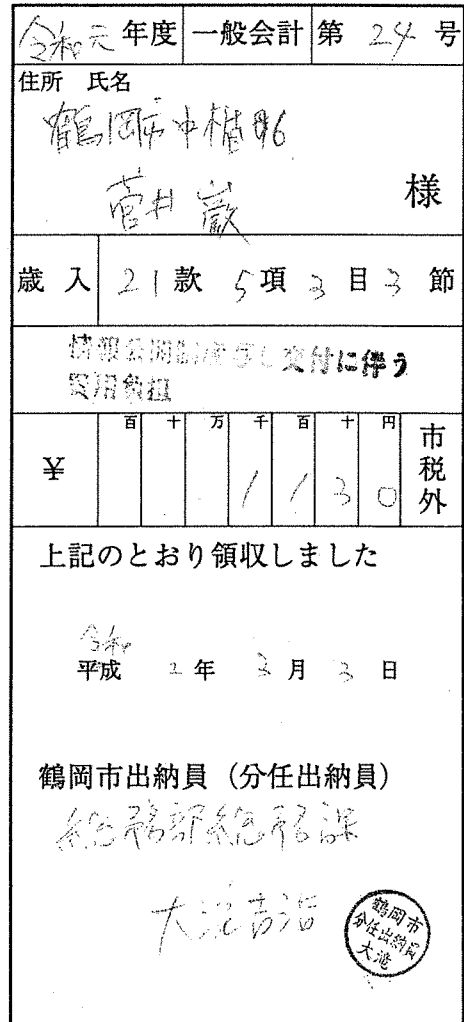 令和元年度 一般会計 第 24 号
住所 氏名
鶴岡市中楯96
菅井 巌 様
歳入 21款 5項 3目 3節
情報公開制度写し交付に伴う
費用負担
百 十 万 千 百 十 円
¥ 1 1 3 0 市税外
上記のとおり領収しました
令和
平成 2年 3月 3日
鶴岡市出納員（分任出納員）
総務部総務課
大滝
鶴岡市
分任出納員
大滝